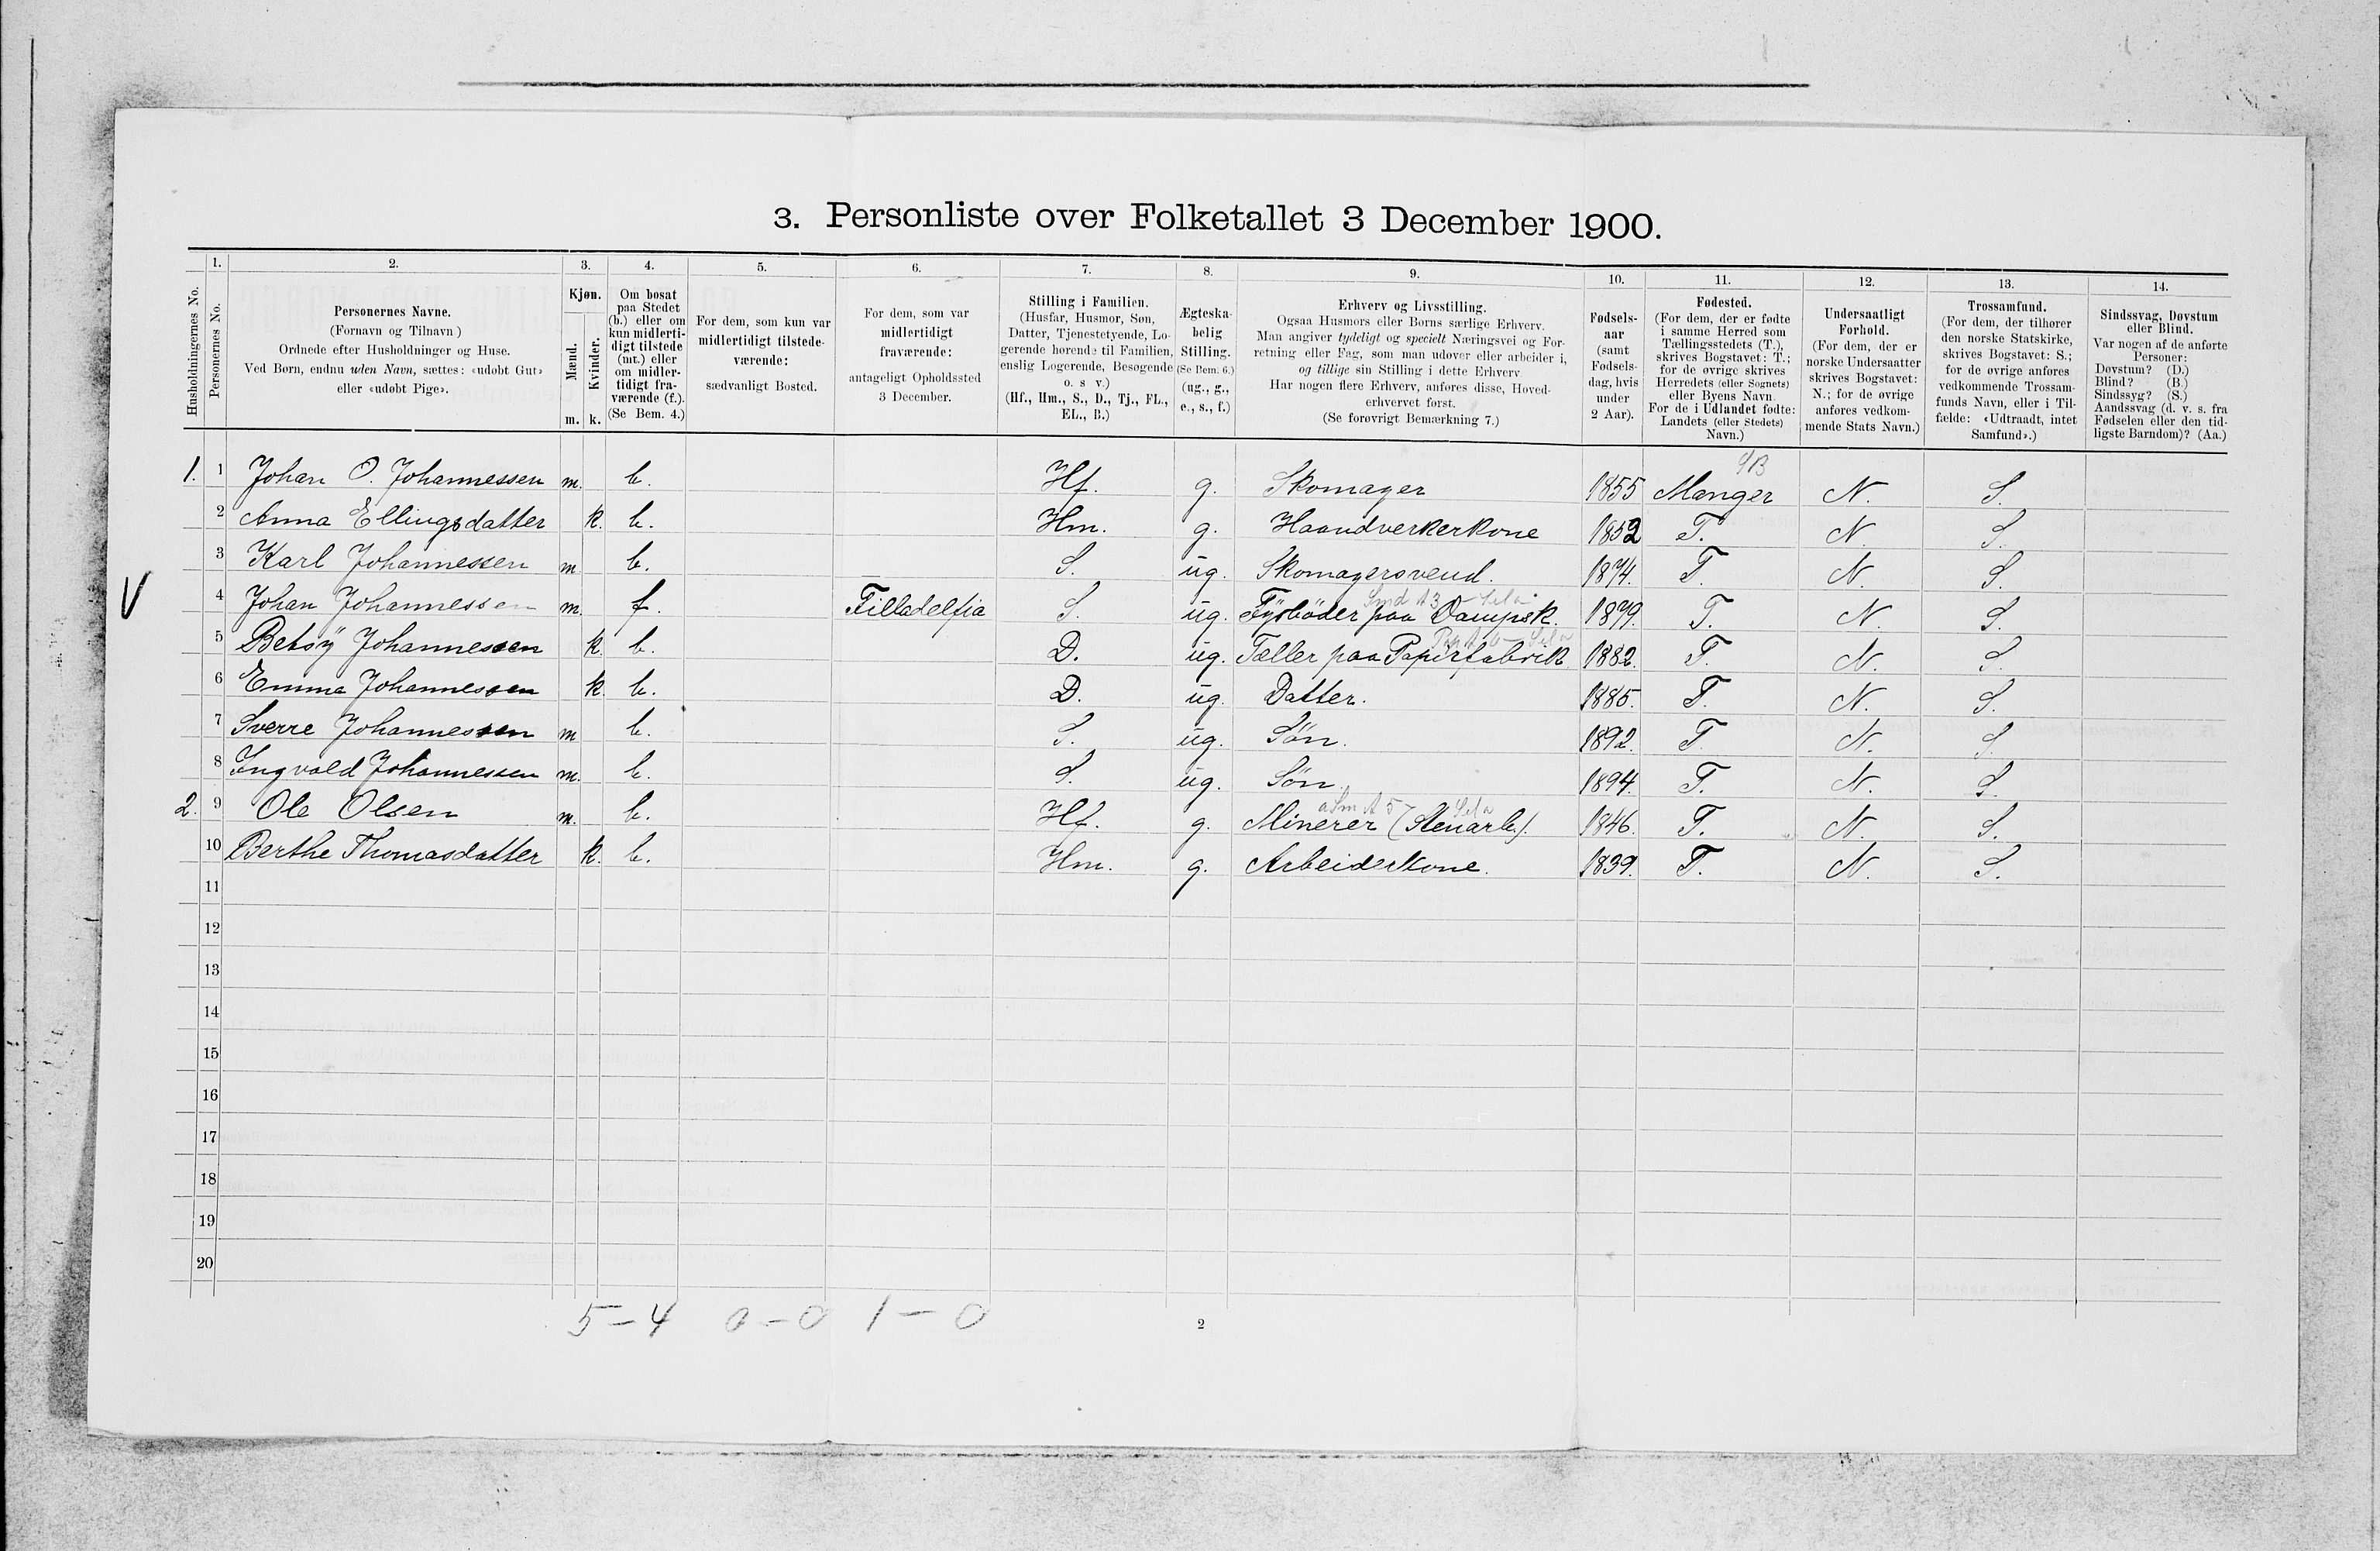 3. Personliste over Folketallet 3 December 1900.
1. 2. 3. 4. 5. 6. 7. 8. 9. 10. 11. 12. 13. 14.
Husholdningernes No.
Personernes No.
Personernes Navne.
(Fornavn og Tilnavn)
Ordnede efter Husholdninger og Huse.
Ved Børn, endnu uden Navn, sættes: «udøbt Gut»
eller «udøbt Pige».
Kjøn.
Mænd.
Kvinder.
m. k.
Om bosat
paa Stedet
(b.) eller om
kun midlerti-
digt tilstede
(mt.) eller
om midler-
tidigt fra-
værende (f.).
(Se Bem. 4.)
For dem, som kun var
midlertidigt tilstede-
værende:
sædvanligt Bosted.
For dem, som var
midlertidigt
fraværende:
antageligt Opholdssted
3 December.
Stilling i Familien.
(Husfar, Husmor, Søn,
Datter, Tjenestetyende, Lo-
gerende hørende til Familien,
enslig Logerende, Besøgende
o. s v.)
(Hf., Hm., S., D., Tj., FL.,
EL., B.)
Ægteska-
belig
Stilling.
(Se Bem. 6.)
(ug., g.,
e., s., f.)
Erhverv og Livsstilling.
Ogsaa Husmors eller Børns særlige Erhverv.
Man angiver tydeligt og specielt Næringsvei og For-
retning eller Fag, som man udøver eller arbeider i,
og tillige sin Stilling i dette Erhverv.
Har nogen flere Erhverv, anføres disse, Hoved-
erhvervet først.
(Se forøvrigt Bemærkning 7.)
Fødsels-
aar
(samt
Fødsels-
dag, hvis
under
2 Aar).
Fødested.
(For dem, der er fødte
i samme Herred som
Tællingsstedets (T.),
skrives Bogstavet: T.;
for de øvrige skrives
Herredets (eller Sognets)
eller Byens Navn.
For de i Udlandet fødte:
Landets (eller Stedets)
Navn.)
Undersaatligt
Forhold.
(For dem, der er
norske Undersaatter
skrives Bogstavet:
N.; for de øvrige
anføres vedkom-
mende Stats Navn.)
Trossamfund.
(For dem, der tilhører
den norske Statskirke,
skrives Bogstavet: S.;
for de øvrige anføres
vedkommende Trossam-
funds Navn, eller i Til-
fælde: «Udtraadt, intet
Samfund».)
Sindssvag, Døvstum
eller Blind.
Var nogen af de anførte
Personer:
Døvstum? (D.)
Blind? (B.)
Sindssyg? (S.)
Aandssvag (d. v. s. fra
Fødselen eller den tid-
ligste Barndom)? (Aa.)
1. 1 Johan O. Johannessen m. b. Hf. g. Skomager 1855 Manger N. S.
2 Anna Ellingsdatter k. b. Hm. g. Haandverkerkone 1852 T. N. S.
3 Karl Johannessen m b. S. ug. Skomagersvend. 1874. T. N. S.
V 4 Johan Johannessen m. f. Filladelfia S. ug. Fyrbøder paa Dampsk. 1879. T. N. S.
5 Betsÿ Johannessen k. b. D. ug. Tæller paa Papirfabrik 1882. T. N. S.
6 Emma Johannessen k. b. D. ug. Datter. 1885. T. N. S.
7 Sverre Johannessen m b. S. ug. Søn. 1892. T. N. S.
8 Ingvald Johannessen m. b. S. ug. Søn. 1894. T. N. S.
2. 9 Ole Olsen m. b. Hf. g. Minerer (Stenarb.). 1846. T. N. S.
10 Berthe Thomasdatter k. b. Hm. g. Arbeiderkone. 1839. T. N. S.
11
12
13
14
15
16
17
18
19
20
5 – 4 0 – 0 1 – 0
2